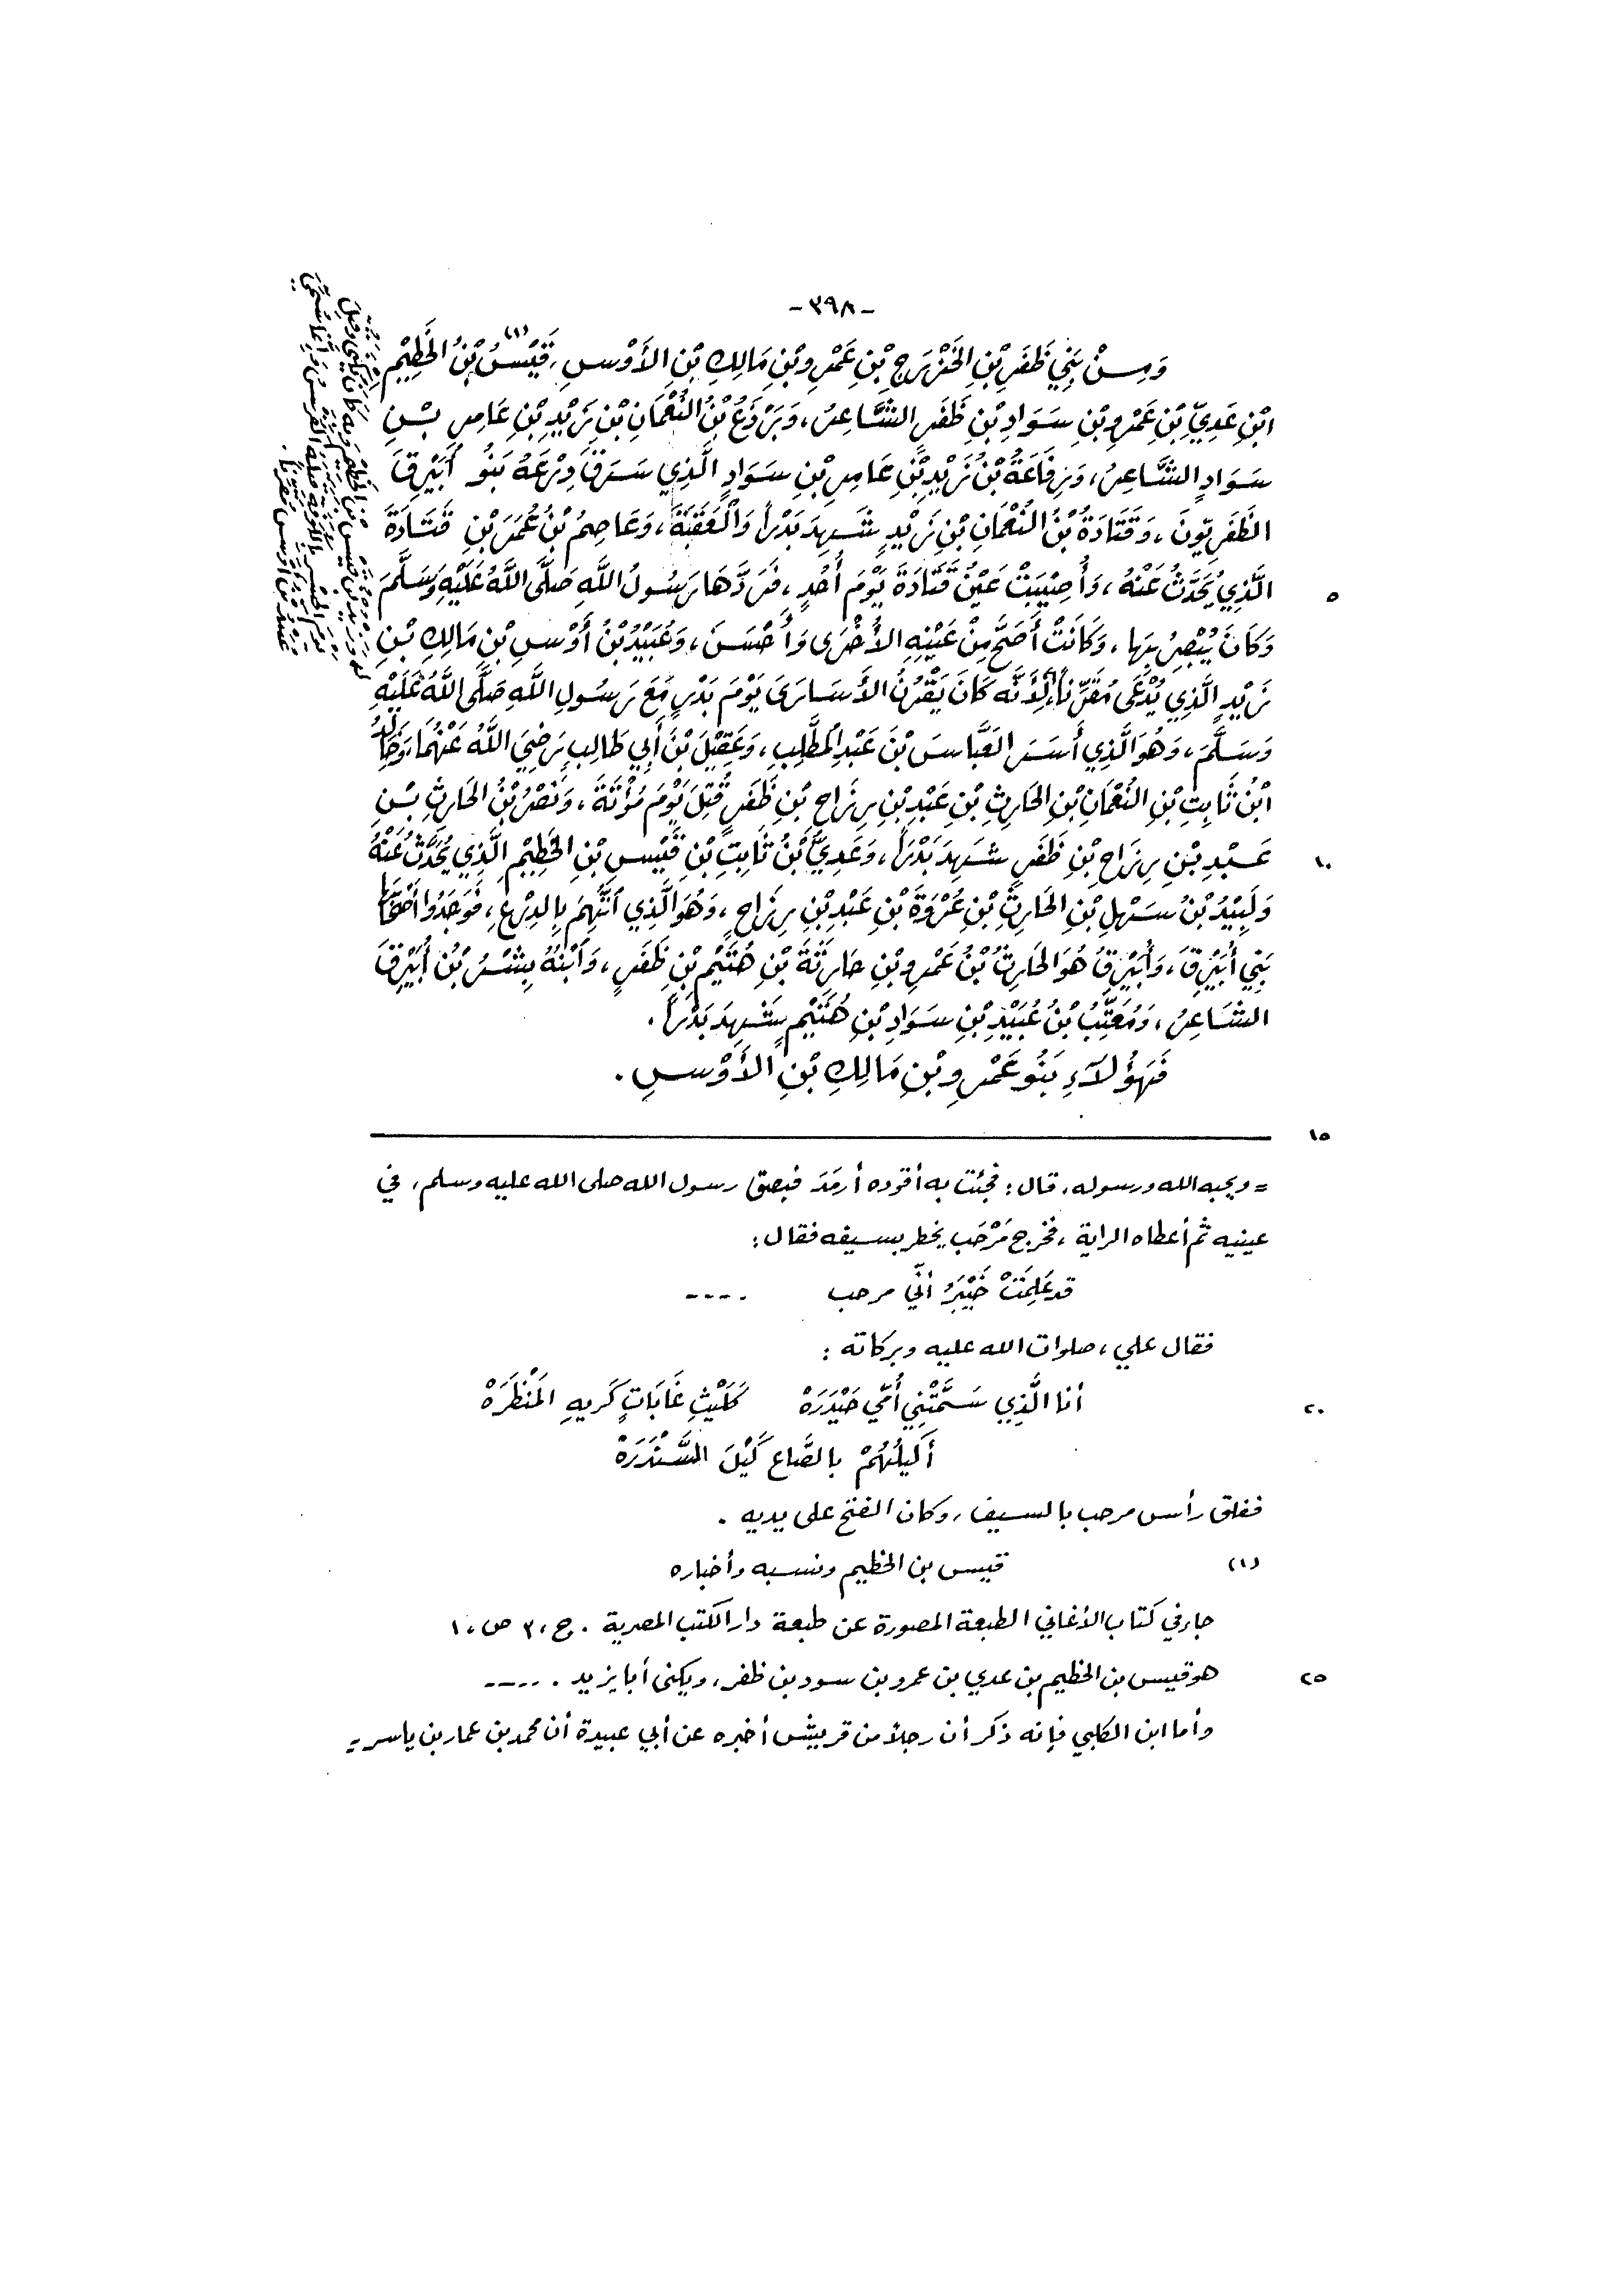 -٣٩٨-
وَمِنْ بَنِي ظَفَرِ بْنِ الخَزْرَجِ بْنِ عَمْرِو بْنِ مَالِكِ بْنِ الأَوْسِ، قَيْسُ(١) بْنُ الخَطِيْمِ
ابْنِ عَدِيِّ بْنِ عَمْرِو بْنِ سَوَادِ بْنِ ظَفَرٍ الشَّاعِرُ، وَبَرْذَعُ بْنُ النُّعْمَانِ بْنِ زَيْدِ بْنِ عَامِرِ بْنِ
سَوَادٍ الشَّاعِرُ، وَرِفَاعَةُ بْنُ زَيْدِ بْنِ عَامِرِ بْنِ سَوَادٍ الَّذِي سَرَقَ دِرْعَهُ بَنُو أُبَيْرِقَ
الظَّفَرِيّونَ، وَقَتَادَةُ بْنُ النُّعْمَانِ بْنِ زَيْدٍ شَهِدَ بَدْراً وَالْعَقَبَةَ، وَعَاصِمُ بْنُ عُمَرَ بْنِ قَتَادَةَ
٥ الَّذِي يُحَدَّثُ عَنْهُ، وَأُصِيْبَتْ عَيْنُ قَتَادَةَ يَوْمَ أُحُدٍ، فَرَدَّهَا رَسُولُ اللَّهِ صَلَّى اللَّهُ عَلَيْهِ وَسَلَّمَ
وَكَانَ يُبْصِرُ بِهَا، وَكَانَتْ أَصَحَّ مِنْ عَيْنِهِ الأُخْرَى وَأَحْسَنَ، وَعُبَيْدُ بْنُ أَوْسِ بْنِ مَالِكِ بْنِ
زَيْدٍ الَّذِي يُدْعَى مُقَرِّناً لِأَنَّه كَانَ يَقْرُنُ الأَسَارَىَ يَوْمَ بَدْرٍ مَعَ رَسُولِ اللَّهِ صَلَّى اللَّهُ عَلَيْهِ
وَسَلَّمَ، وَهُوَ الَّذِي أَسَرَ العَبَّاسَ بْنَ عَبْدِ المُطَّلِبِ، وَعَقِيْلَ بْنَ أَبِي طَالِبٍ رَضِيَ اللَّهُ عَنْهُمَا، وَخَالِدُ
ابْنُ ثَابِتِ بْنِ النُّعْمَانِ بْنِ الحَارِثِ بْنِ عَبْدِ بْنِ رِزَاحِ بْنِ ظَفَرٍ قُتِلَ يَوْمَ مُؤْتَةَ، وَنَصْرُ بْنُ الحَارِثِ بْنِ
١٠ عَبْدِ بْنِ رِزَاحِ بْنِ ظَفَرٍ شَهِدَ بَدْراً، وَعَدِيُّ بْنُ ثَابِتِ بْنِ قَيْسِ بْنِ الخَطِيْمِ الَّذِي يُحَدَّثُ عَنْهُ
وَلَبِيْدُ بْنُ سَهْلِ بْنِ الحَارِثِ بْنِ عُرْوَةَ بْنِ عَبْدِ بْنِ رِزَاحٍ، وَهُوَ الَّذِي اتُّهِمَ بِالدِرْعِ، فَوَجَدُوا أَصْحَابَهَا
بَنِي أُبَيْرِقَ، وَأُبَيْرِقُ هُوَ الحَارِثُ بْنُ عَمْرِو بْنِ حَارِثَةَ بْنِ هُتَيْمِ بْنِ ظَفَرٍ، وَابْنُهُ بِشْرُ بْنُ أُبَيْرِقَ
الشَاعِرُ، وَمُعَتِّبُ بْنُ عُبَيْدِ بْنِ سَوَادِ بْنِ هُتَيْمٍ شَهِدَ بَدْراً.
فَهَؤُلَآءِ بَنُو عَمْرِو بْنِ مَالِكِ بْنِ الأَوْسِ.
١٥
= ويحبه الله ورسوله، قال: فجئت به أقوده أرمَدَ فبصق رسول الله صلى الله عليه وسلم، في
عينيه ثم أعطاه الراية، فخرج مَرْحَب يخطر بسيفه فقال:
قد عَلِمَتْ خَيْبَرُ أنّي مرحب ....
فقال علي، صلوات الله عليه وبركاته:
٢٠ أنا الَّذِي سَمَّتْنِي أُمّي حَيْدَرَهْ كَلَيْثِ غَابَاتٍ كَريهِ المَنْظَرَهْ
أَكيلُهُمْ بالصَّاع كَيْلَ السَّنْدَرَهْ
ففلق رأس مرحب بالسيف، وكان الفتح على يديه.
(١) قيس بن الخطيم ونسبه وأخباره
جاء في كتاب الأغاني الطبعة المصورة عن طبعة دار الكتب المصرية. ج، ٣ ص، ١
٢٥ هو قيس بن الخطيم بن عدي بن عمرو بن سود بن ظفر، ويكنى أبا يزيد. ....
وأما ابن الكلبي فإنه ذكر أن رجلاً من قريش أخبره عن أبي عبيدة أن محمد بن عمار بن ياسر =